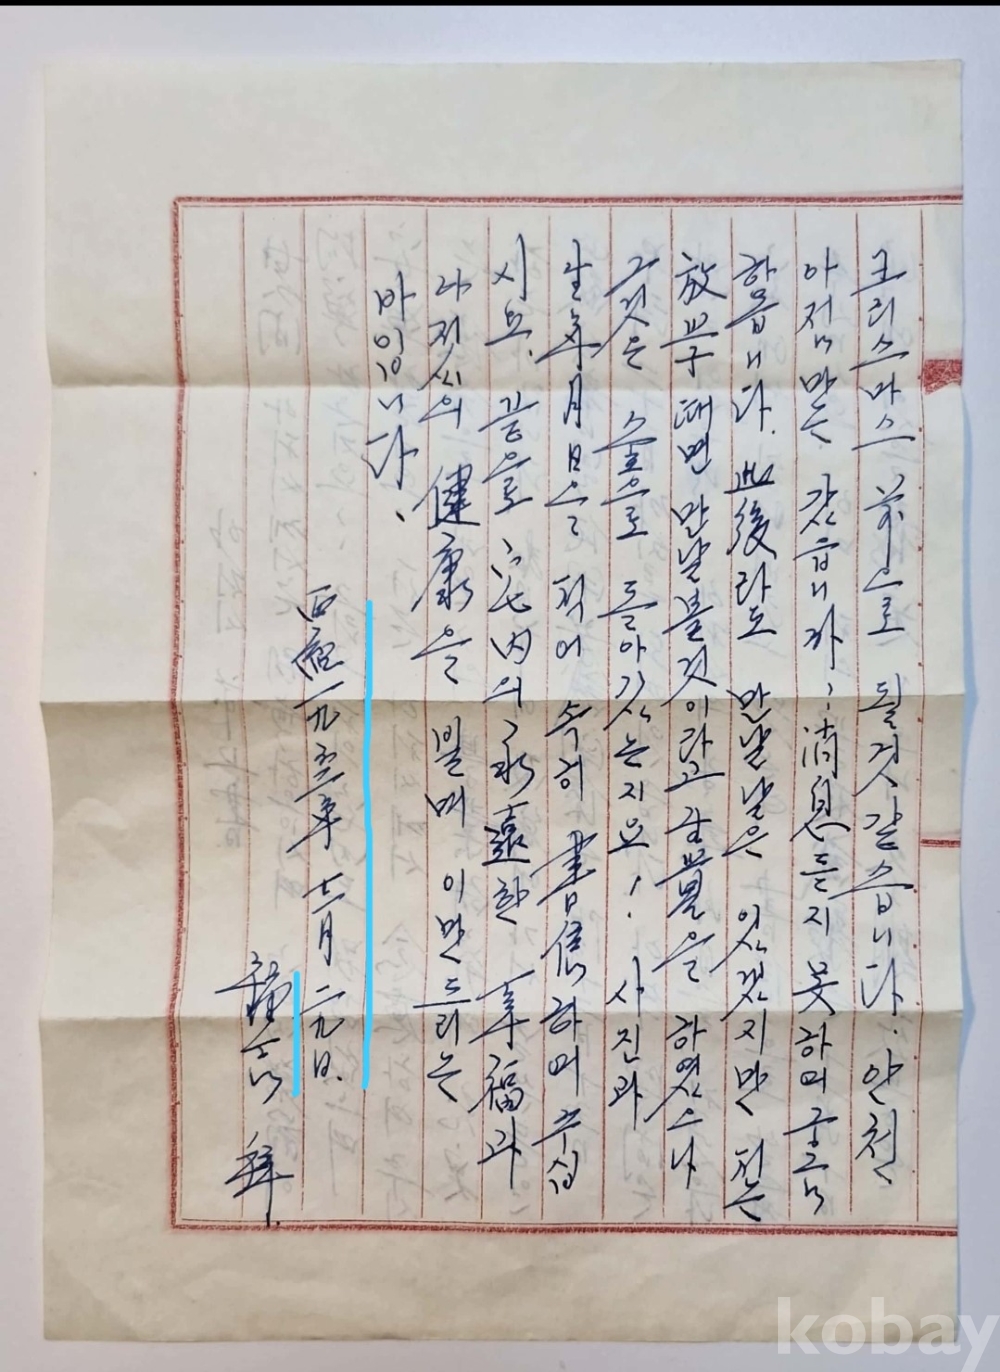 크리스마스 前으로 될것 같습니다. 안천
아저씨만은 갔읍니까? 消息 듣지 못하며 궁금
하읍니다. 此後라도 만날날은 있겠지만 저는
放學 때면 만날볼것이라고 하였으나
그것은 으로 돌아가는지요! 사진과
月日은 적어 속히 書信하며 주십
시요. 끝으로 宅内의 永遠한 幸福과
의 健康을 빌며 이만 드리는
바입니다.
西紀一九五三年 十一月 二九日.
拜.
kobay